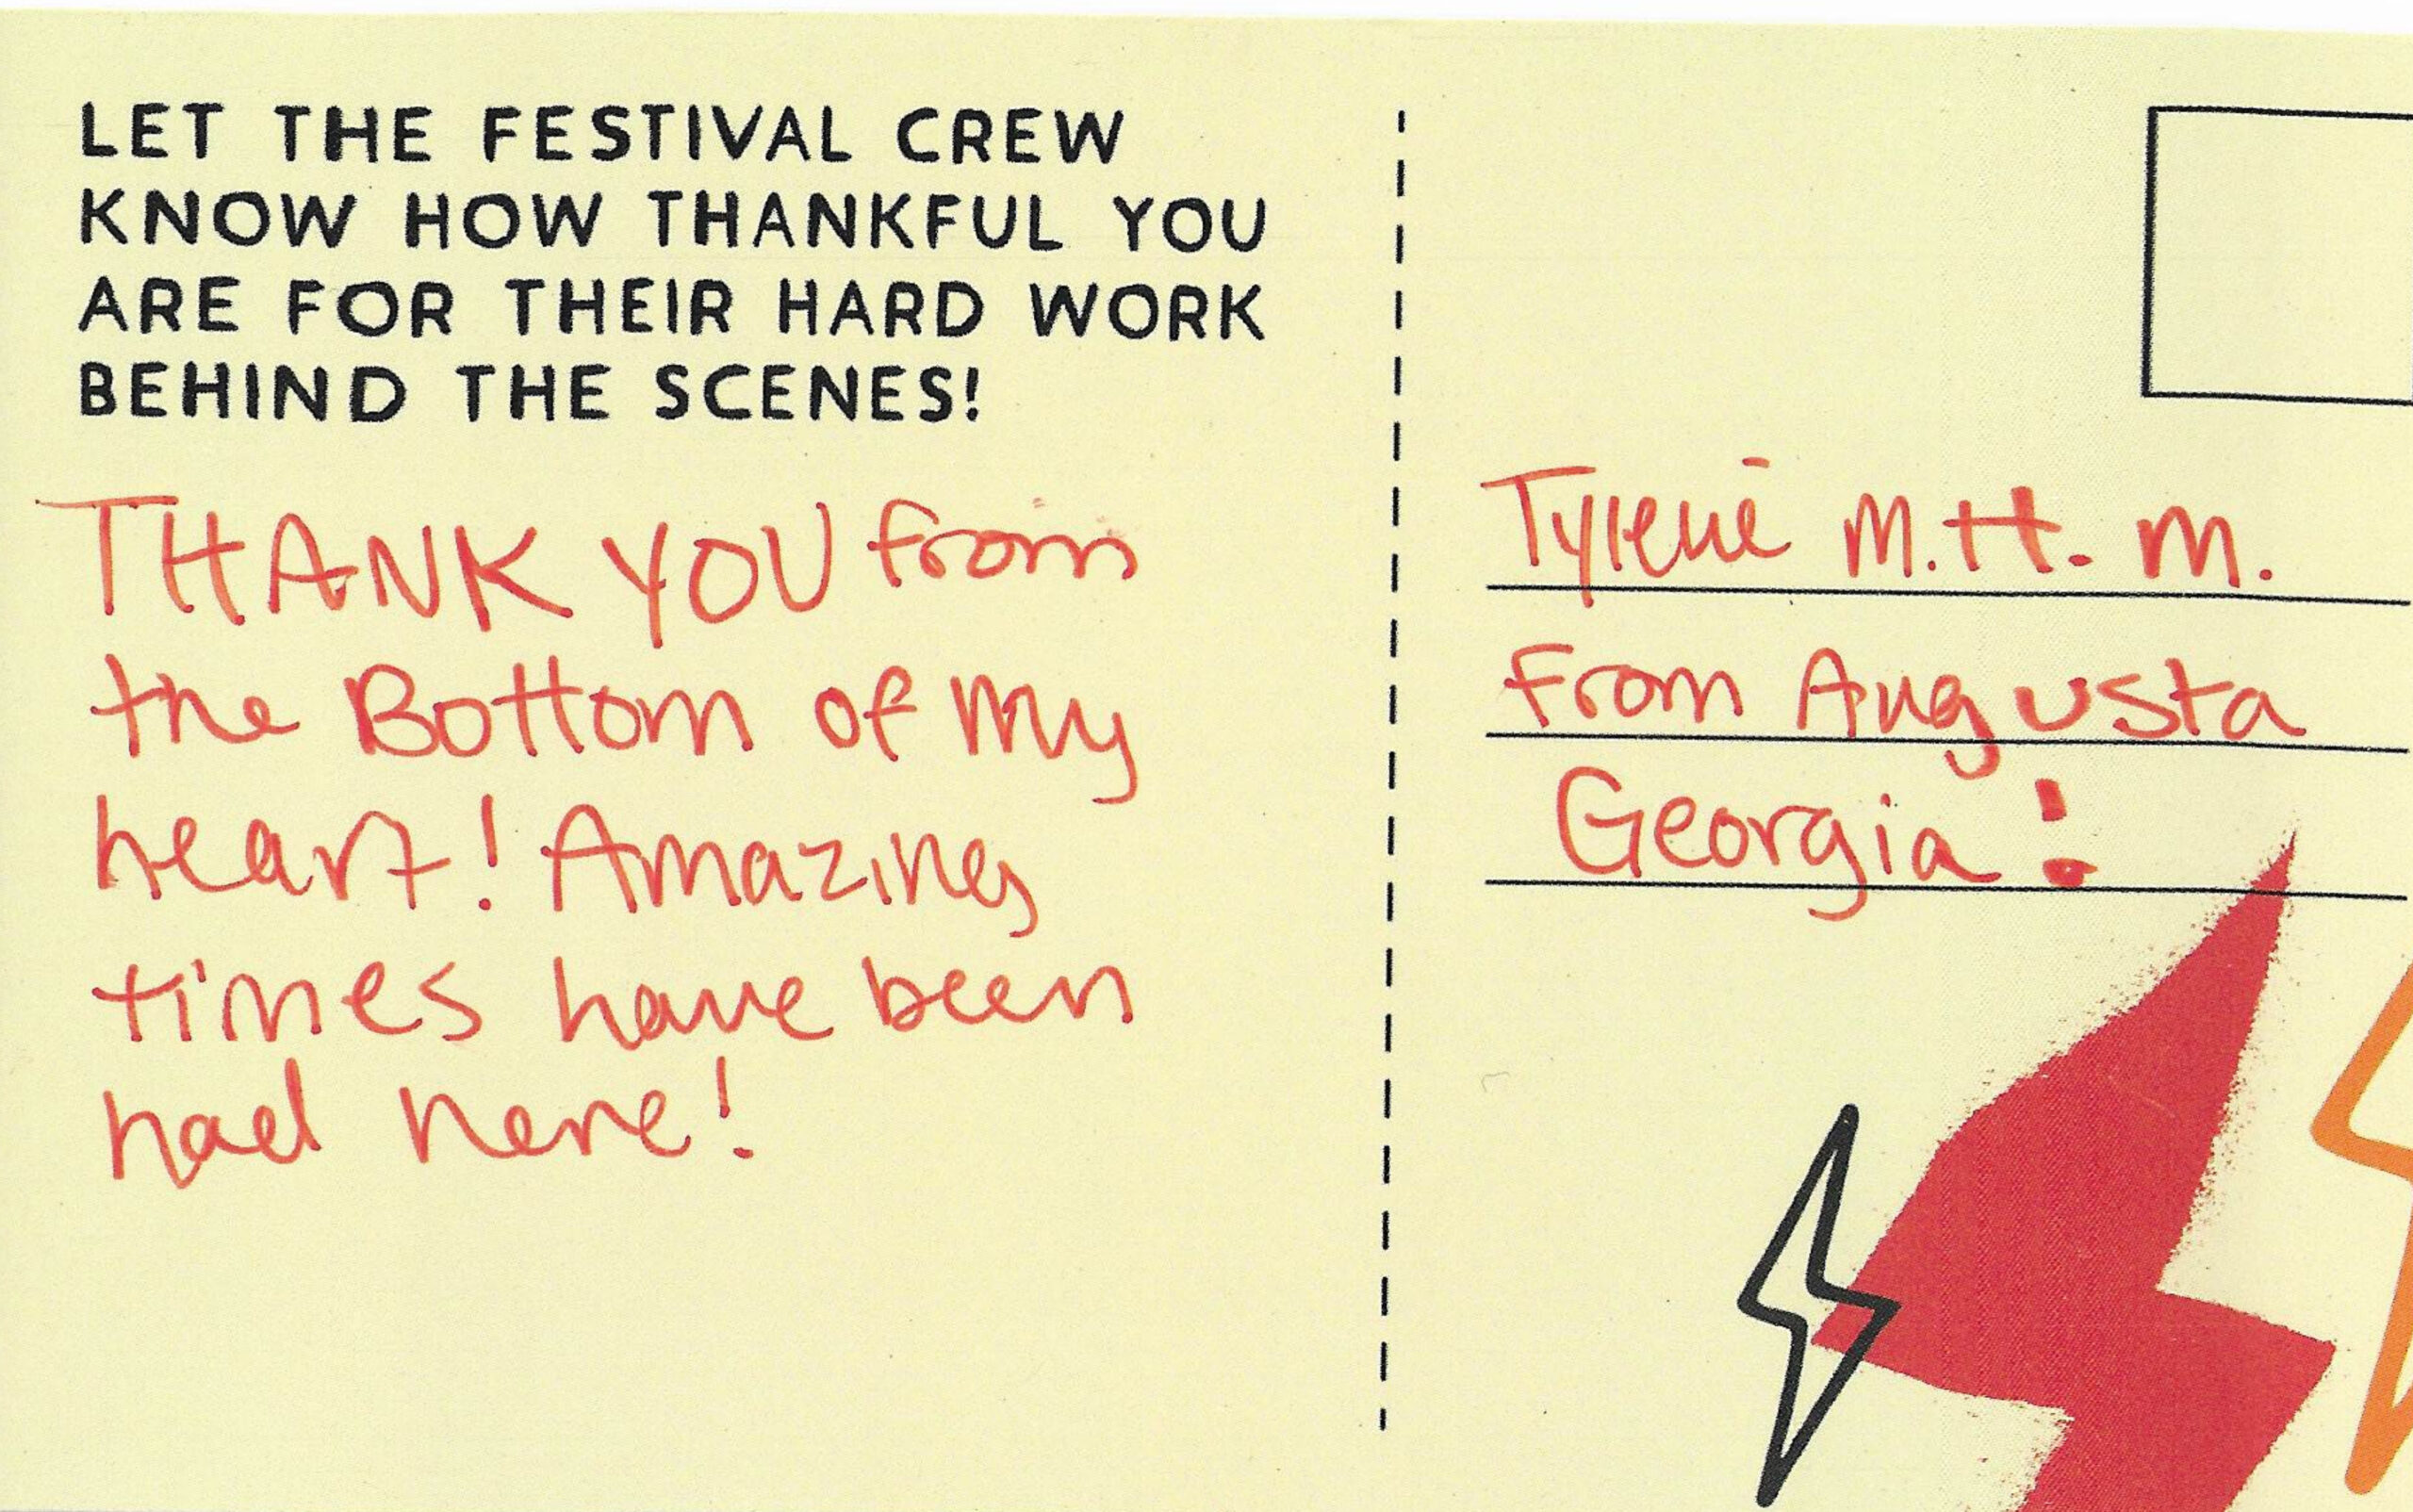 LET THE FESTIVAL CREW
KNOW HOW THANKFUL YOU
ARE FOR THEIR HARD WORK
BEHIND THE SCENES!
THANK YOU from
the Bottom of my
heart! Amazing
times have been
had here!
M.H. M.
From Augusta
Georgia!